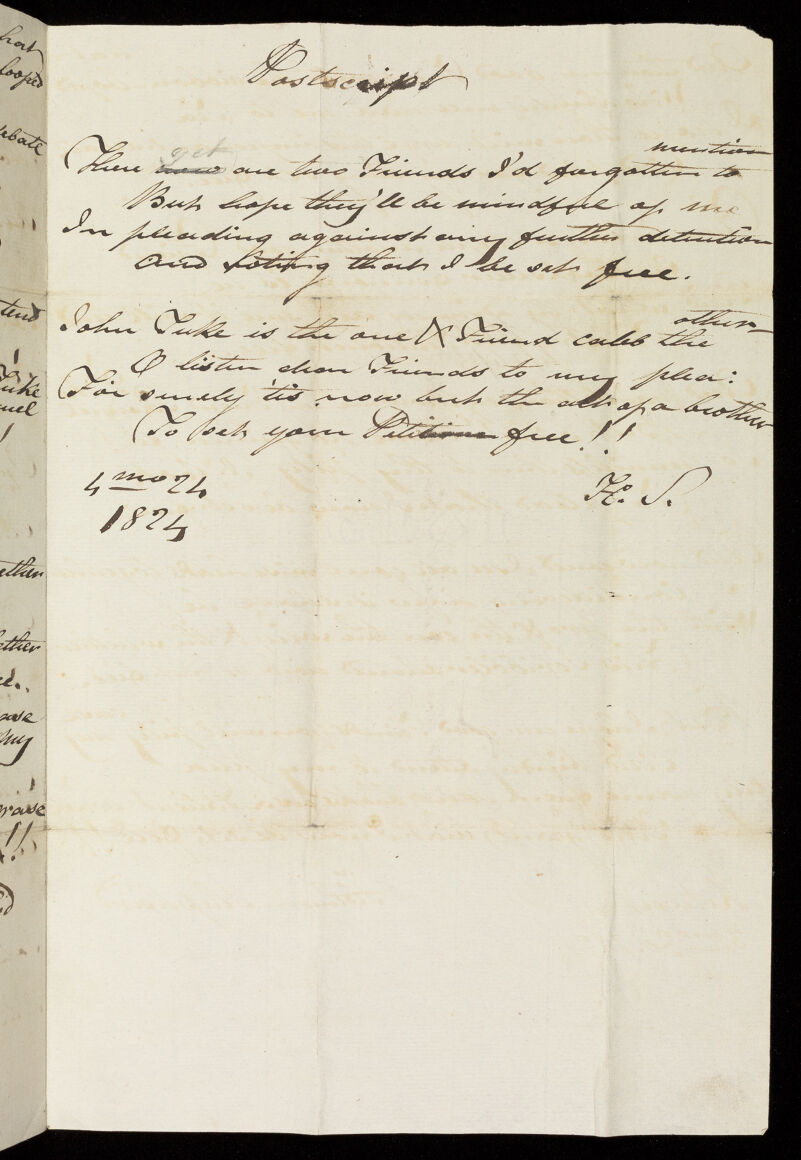 Postscript
There yet are two Friends I'd forgotten to mention
But hope they'll be mindful of me
In pleading against any further detention
And voting that I be set free.
John Tuke is the one & Friend Caleb the other
O listen dear Friends to my plea:
For surely 'tis now but the act of a brother
To set your Petitioner free!!
4 mo 24
1824
H. S.
hat
looped
debate
tend
!
Tuke
uel
!
ether
ether
ease
my
!
raise
!!